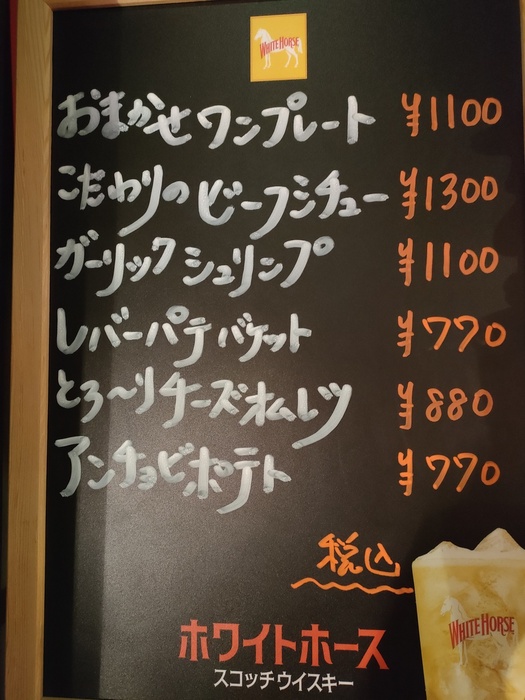 WHITE HORSE
おまかせワンプレート ¥1100
こだわりのビーフシチュー ¥1300
ガーリックシュリンプ ¥1100
レバーパテバケット ¥770
とろ〜りチーズオムレツ ¥880
アンチョビポテト ¥770
税込
WHITE HORSE
ホワイトホース
スコッチウイスキー